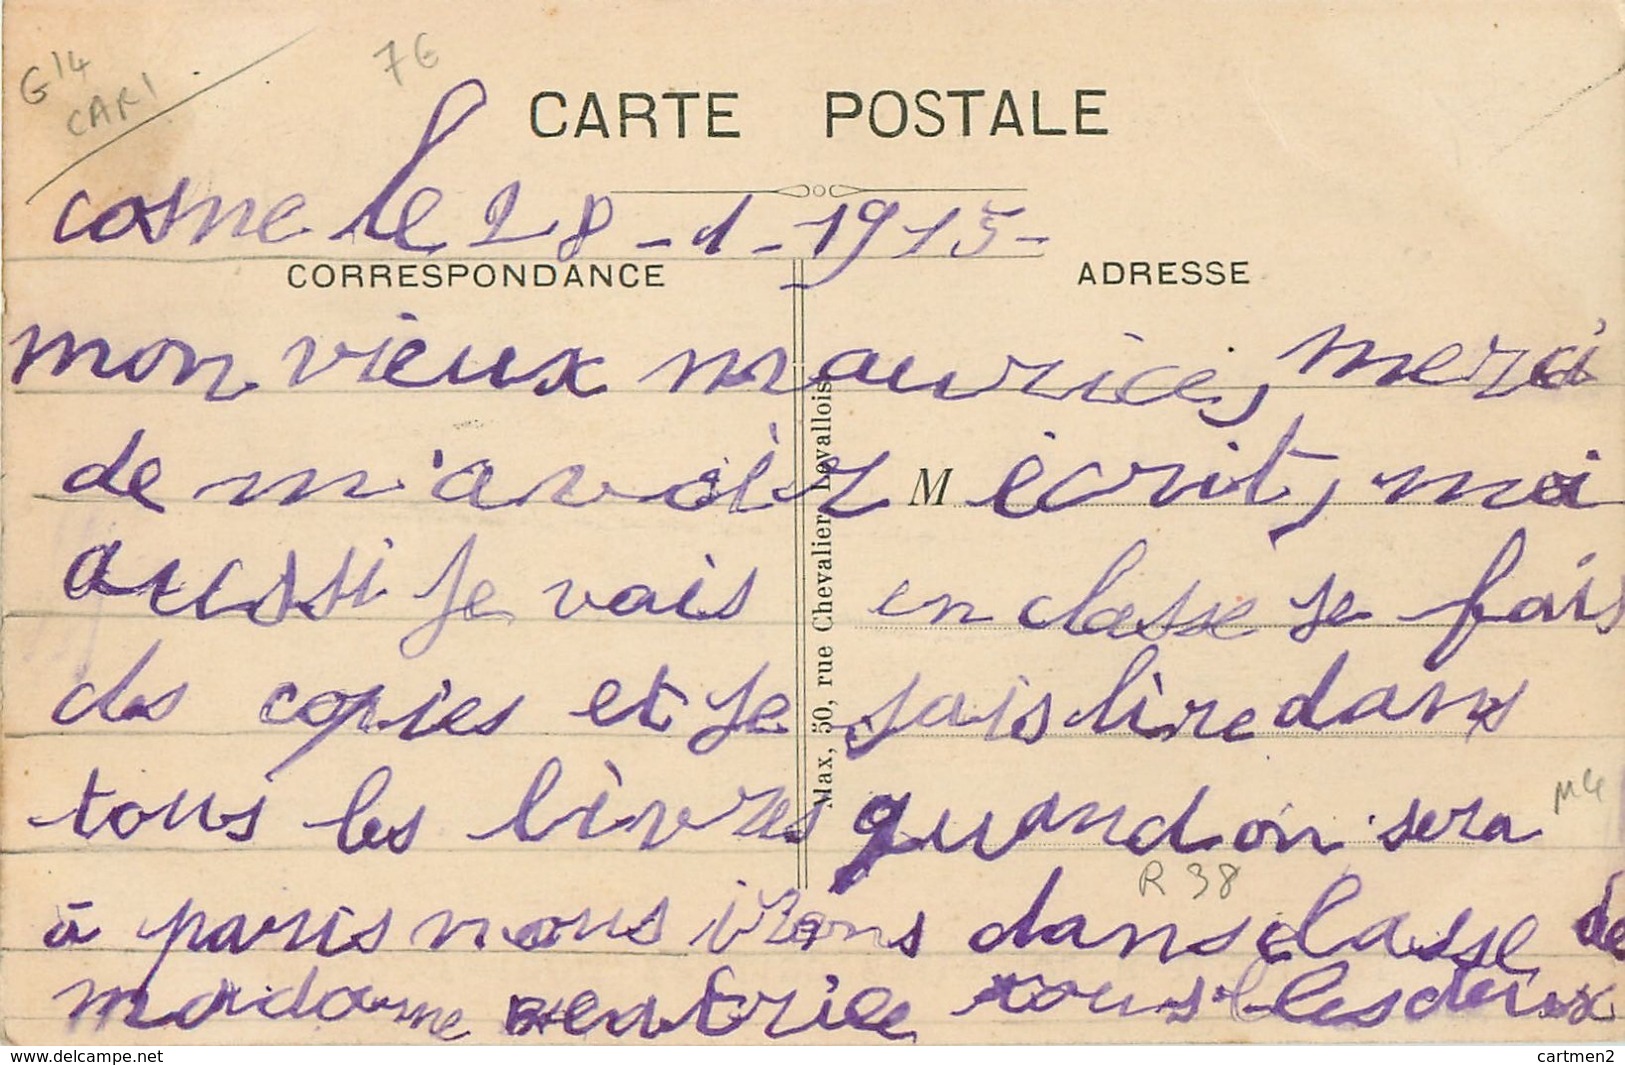 G14
CARI
76
CARTE POSTALE
cosne le 28-1-1915-
CORRESPONDANCE
ADRESSE
mon vieux maurice, merci
de m'avoir M écrit, moi
aussi je vais en classe je fais
des copies et je sais lire dans
tous les livres quand on sera
à paris nous irons dans classe de
madame beatrice tous les deux
Max, 50, rue Chevalier Levallois
M4
R 38
www.delcampe.net
cartmen2